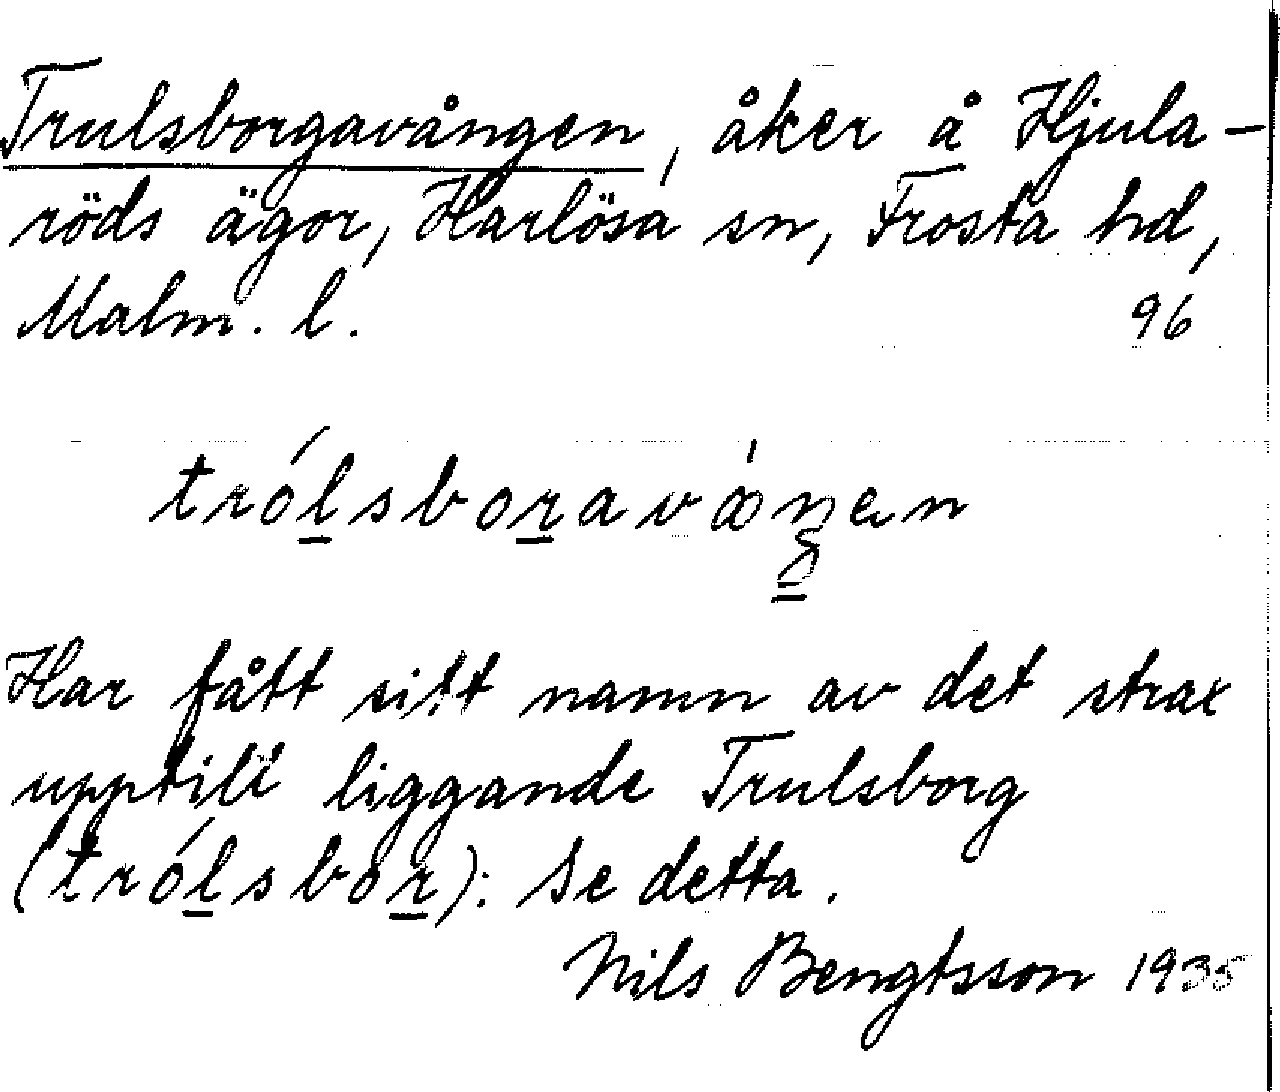 Trulsborgavången, åker å Hjula-
röds ägor, Harlösa sn, Frosta hd,
Malm. l. 96
trólsboravóŋen
Har fått sitt namn av det strax
upptill liggande Trulsborg
(trólsbor). Se detta.
Nils Bengtsson 1935